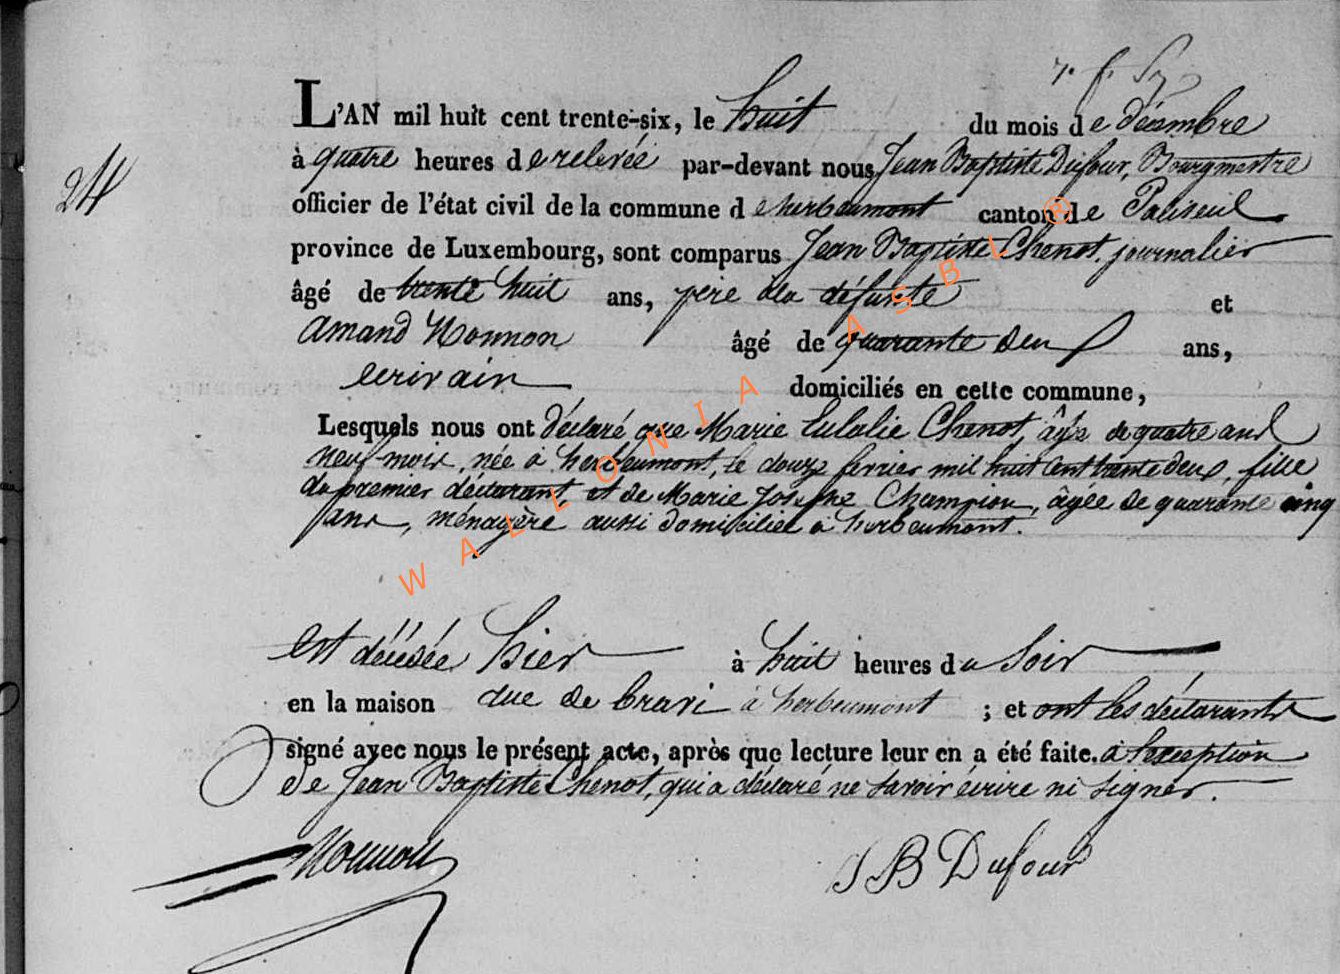 L'AN mil huit cent trente-six, le huit du mois de décembre
24
à quatre heures de relevée par-devant nous Jean Baptiste Dufour, Bourgmestre
officier de l'état civil de la commune d'herbeumont canton de Paliseul
province de Luxembourg, sont comparus Jean Baptiste Chenot, journalier
âgé de trente huit ans, père de la défunte et
Amand Monnon âgé de quarante deux ans,
écrivain domiciliés en cette commune,
Lesquels nous ont déclaré que Marie Eulalie Chenot, âgée de quatre ans
neuf mois, née à herbeumont, le douze fevrier mil huit cent trente deux, fille
du premier déclarant, et de Marie Josephe Champion, âgée de quarante cinq
ans, ménagère aussi domiciliée à herbeumont.
est décédée hier à huit heures du soir
en la maison rue de à herbeumont ; et ont les déclarants
signé avec nous le présent acte, après que lecture leur en a été faite. à l'exception
de Jean Baptiste Chenot, qui a déclaré ne savoir écrire ni signer.
Monnon JB Dufour
WALLONIA ASBL ®